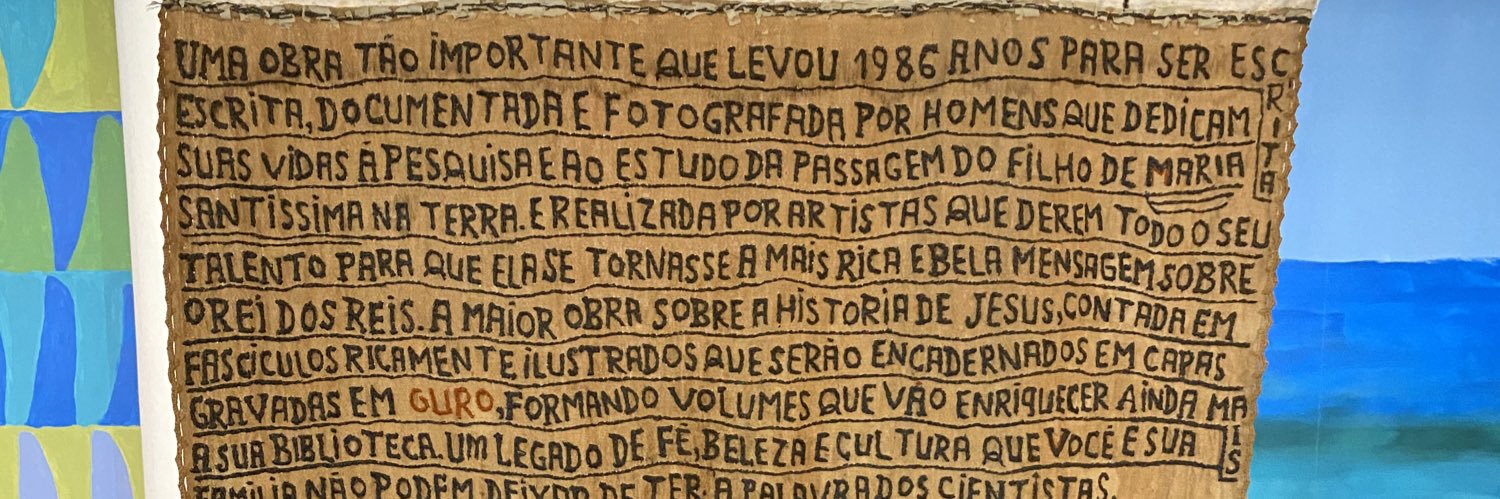 UMA OBRA TÃO IMPORTANTE QUE LEVOU 1986 ANOS PARA SER ESCRITA
ESCRITA, DOCUMENTADA E FOTOGRAFADA POR HOMENS QUE DEDICAM
SUAS VIDAS Á PESQUISA E AO ESTUDO DA PASSAGEM DO FILHO DE MARIA
SANTISSIMA NA TERRA. E REALIZADA POR ARTISTAS QUE DEREM TODO O SEU
TALENTO PARA QUE ELA SE TORNASSE A MAIS RICA E BELA MENSAGEM SOBRE
O REI DOS REIS. A MAIOR OBRA SOBRE A HISTORIA DE JESUS, CONTADA EM
FASCÍCULOS RICAMENTE ILUSTRADOS QUE SERÃO ENCADERNADOS EM CAPAS
GRAVADAS EM OURO, FORMANDO VOLUMES QUE VÃO ENRIQUECER AINDA MAIS
A SUA BIBLIOTECA. UM LEGADO DE FÉ, BELEZA E CULTURA QUE VOCÊ E SUA
FAMILIA NÃO PODEM DEIXAR DE TER. A PALAVRA DOS CIENTISTAS.